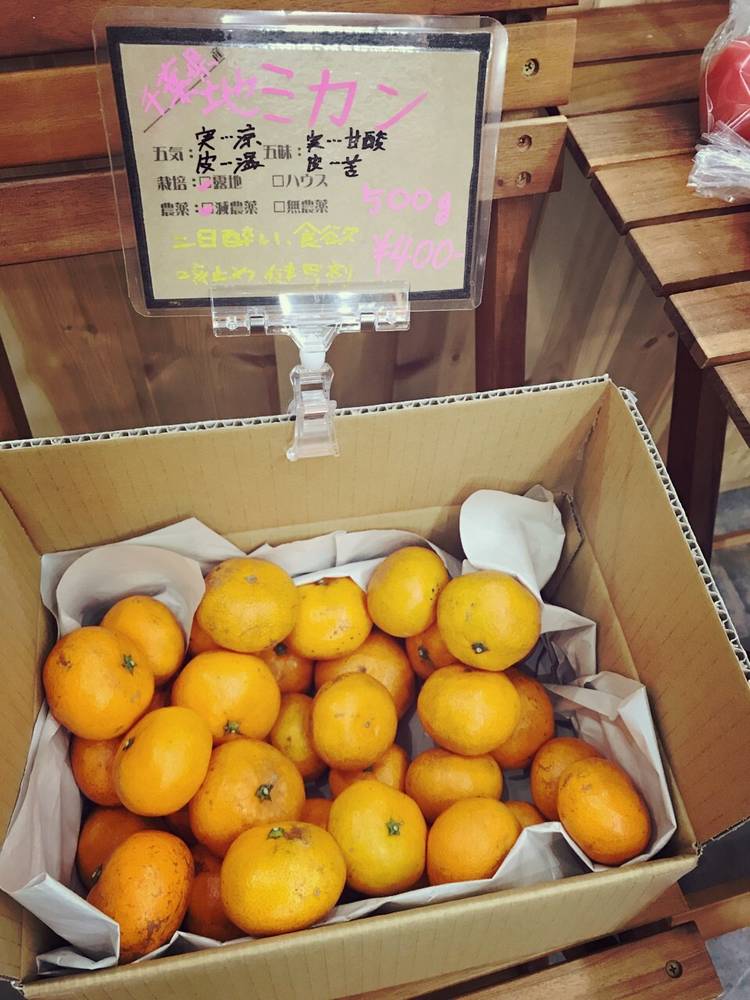 千葉県産
地ミカン
五気：実…涼 五味：実…甘酸
皮…温 皮…苦
栽培：□露地 □ハウス
農薬：□減農薬 □無農薬
500g
二日酔い、食欲
¥400-